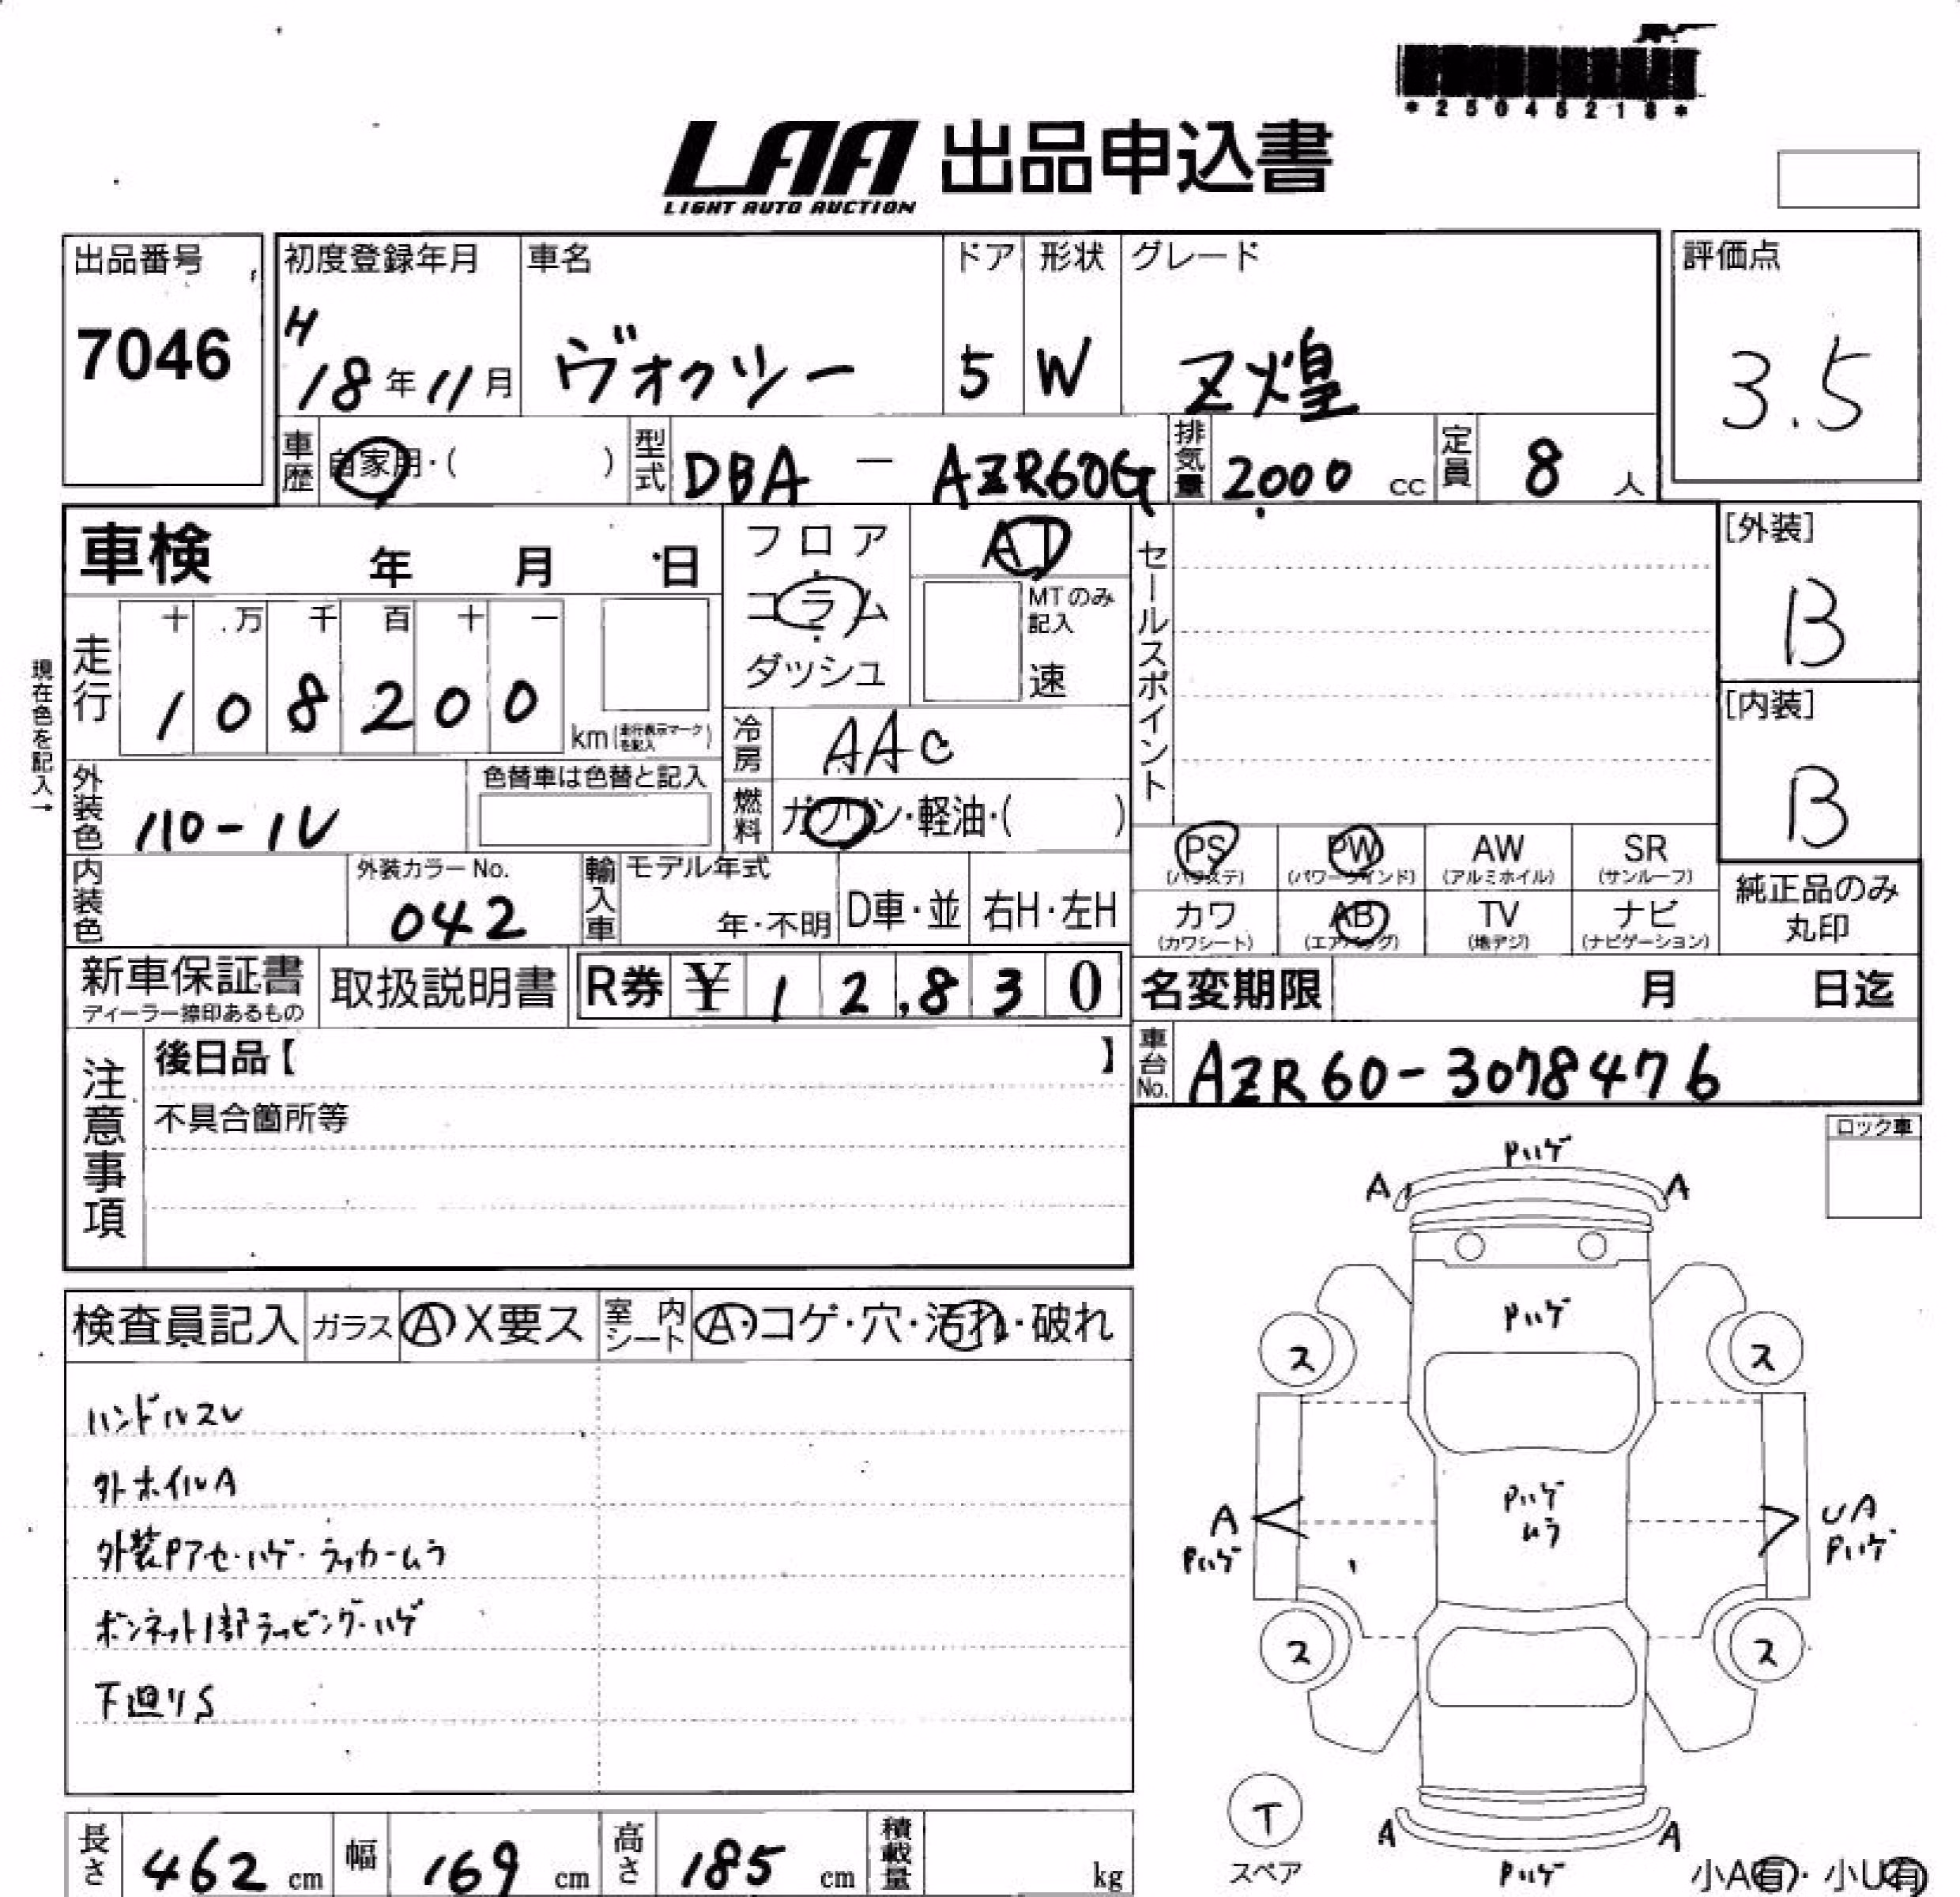 *25045218*
LAA 出品申込書
LIGHT AUTO AUCTION
出品番号
7046
初度登録年月
H
18年11月
車名
ヴォクシー
ドア
5
形状
W
グレード
Z煌
評価点
3.5
車歴
自家用・( )
型式
DBA - AZR60G
排気量
2000 cc
定員
8 人
車検 年 月 日
フロア
コラム
ダッシュ
AT
MTのみ記入
速
セールスポイント
[外装]
B
[内装]
B
現在色を記入→
走行
十 万 千 百 十 一
1 0 8 2 0 0
km(走行表示マークを記入)
冷房
AAC
外装色
110-1V
色替車は色替と記入
燃料
ガソリン・軽油・( )
PS
(パワステ)
PW
(パワーウインド)
AW
(アルミホイル)
SR
(サンルーフ)
カワ
(カワシート)
AB
(エアバッグ)
TV
(地デジ)
ナビ
(ナビゲーション)
純正品のみ
丸印
内装色
外装カラーNo.
042
輸入車
モデル年式
年・不明
D車・並
右H・左H
新車保証書
ディーラー捺印あるもの
取扱説明書
R券 ¥ 1 2,8 3 0
名変期限 月 日迄
車台No.
AZR60-3078476
注意事項
後日品【 】
不具合箇所等
ロック車
検査員記入
ガラス
A X要ス
室内シート
A・コゲ・穴・汚れ・破れ
ハンドルスレ
外ホイルA
外装Pアセ・ハゲ・ラッカームラ
ボンネット1部ラッピング・ハゲ
下廻りS
Pハゲ
A A
Pハゲ
ス ス
Pハゲ
ムラ
A
Pハゲ
UA
Pハゲ
ス ス
T
スペア
A A
Pハゲ
小A有・小U有
長さ
462 cm
幅
169 cm
高さ
185 cm
積載量
kg